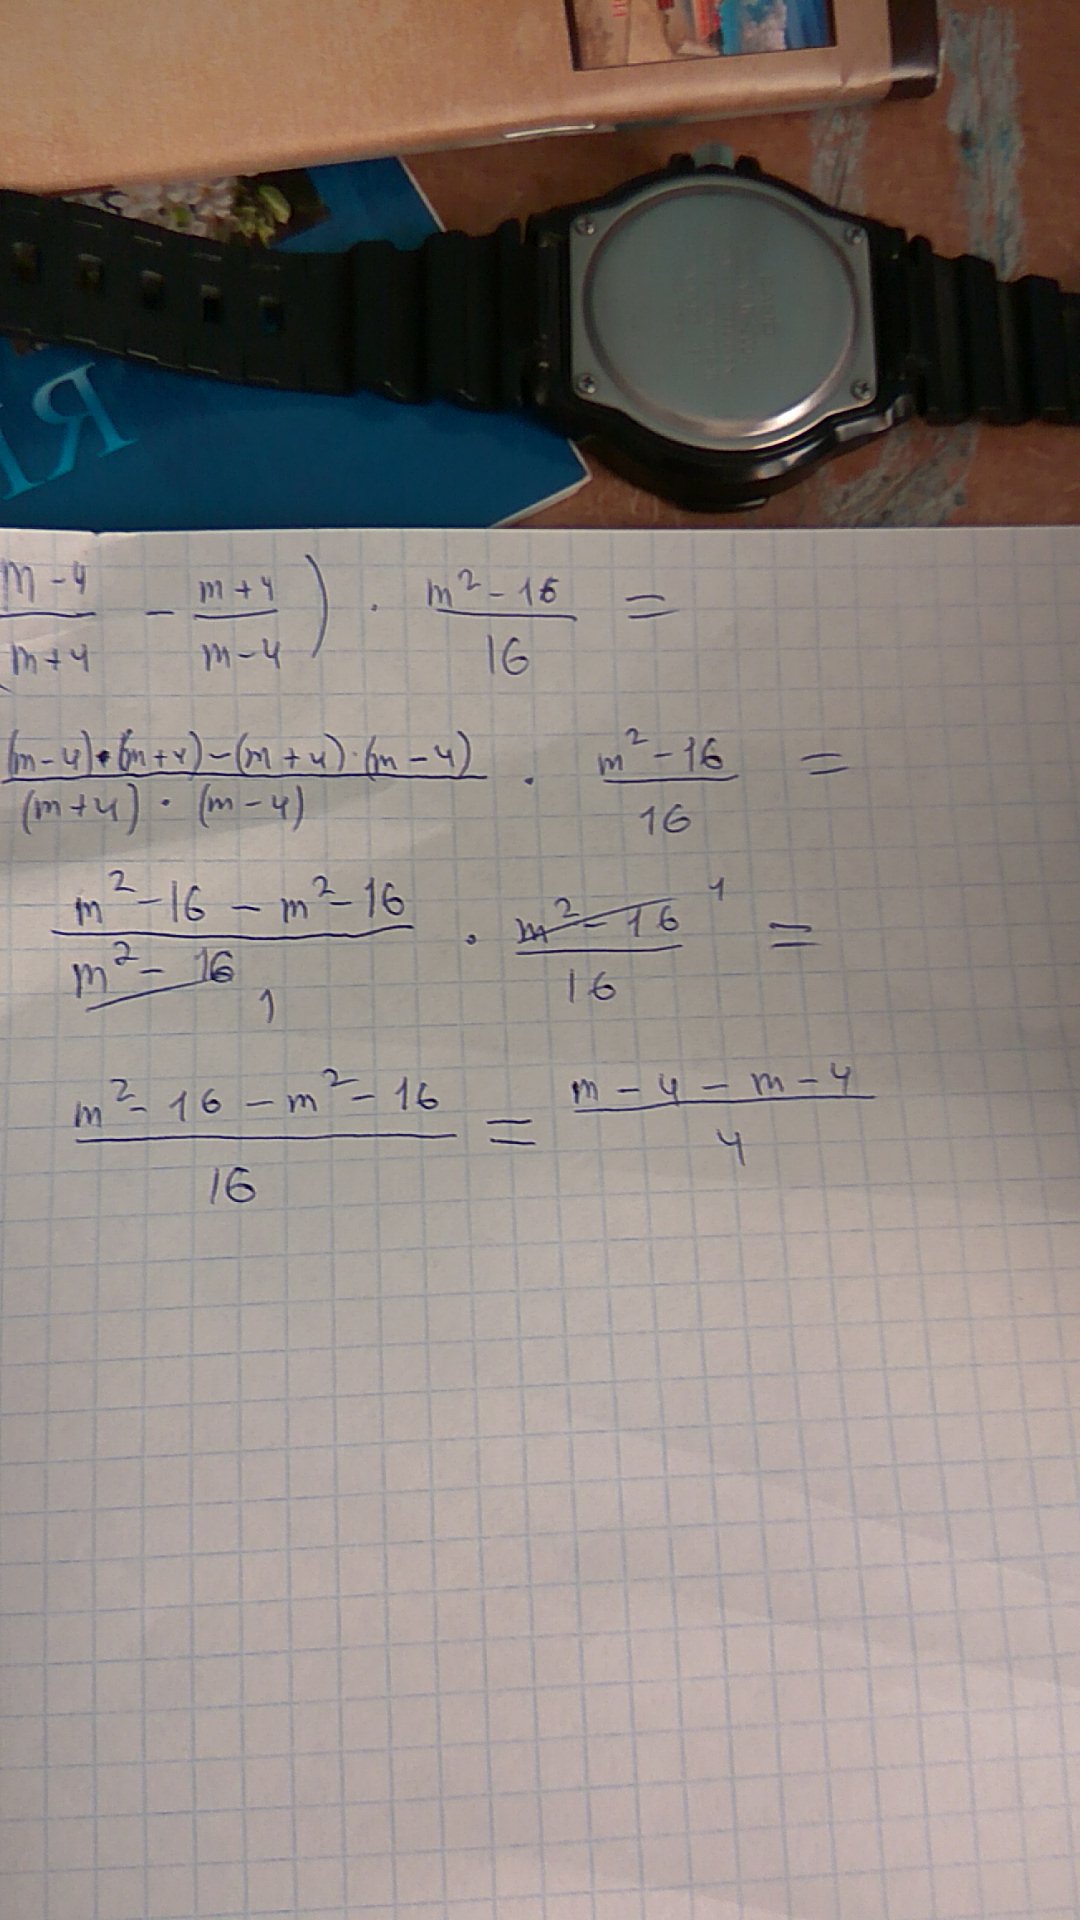 m-4/m+4 - m+4/m-4) · m²-16/16 =
(m-4)·(m+4)-(m+4)·(m-4)/(m+4)·(m-4) · m²-16/16 =
m²-16-m²-16/m²-16 1 · m²-16 1/16 =
m²-16-m²-16/16 = m-4-m-4/4